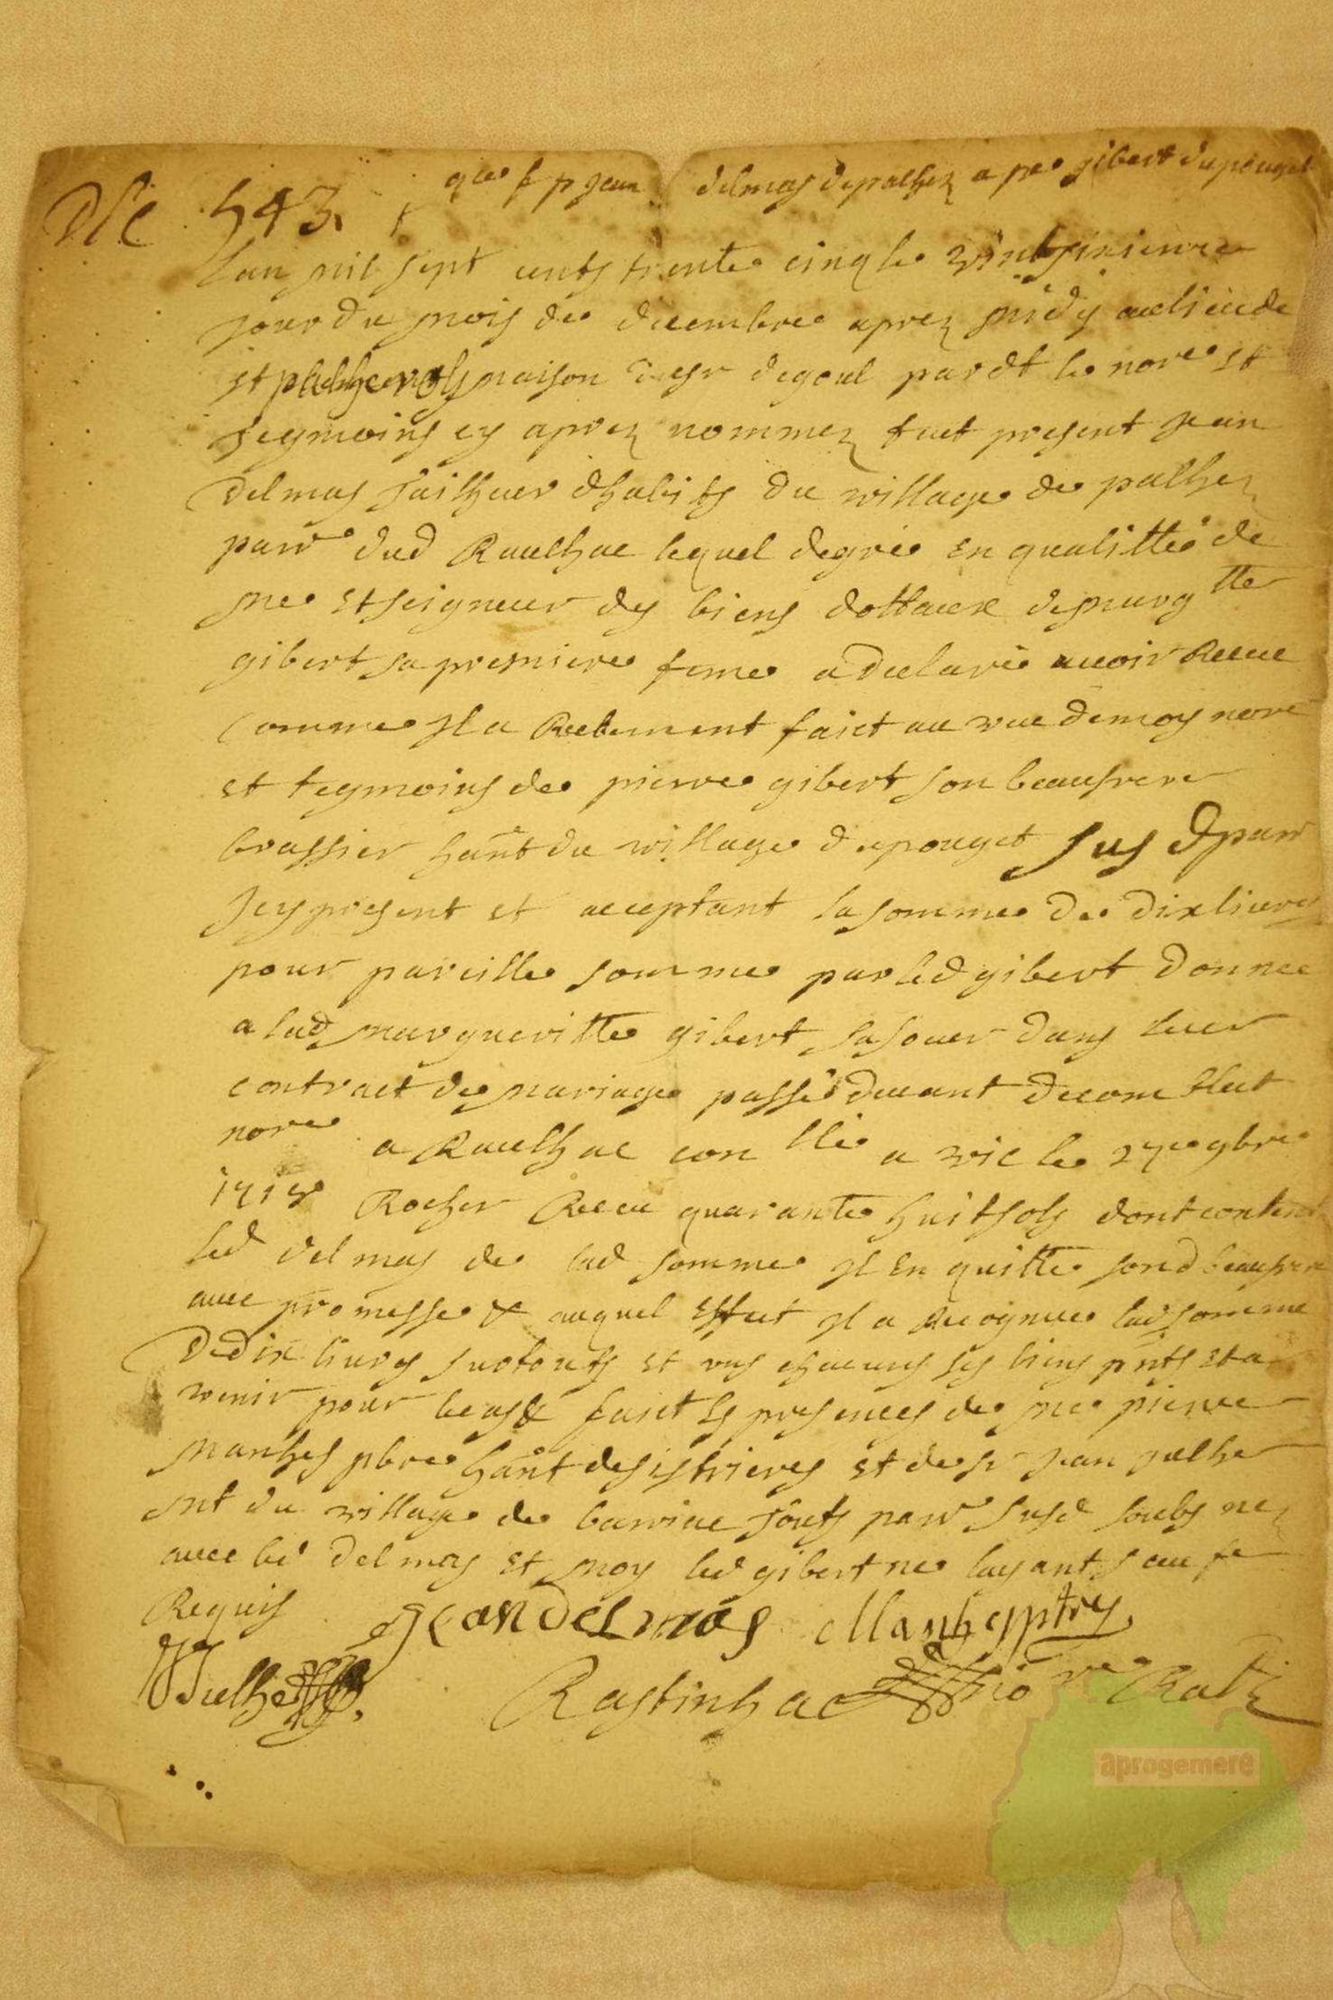 543. qce p jean delmas de palhez a pre gibert du pouget
Lan mil sept cents trente cinq le vintsixieme
jour du mois de decembre aprez midy au lieu de
st maison du sr degoul pardt le nore et
tesmoins cy aprez nommez fust present jean
Delmas du village de palhez
parre dud Raulhac lequel degrée en qualitté de
me et seigneur des biens dottaux de marg tte
gibert sa premiere feme a declaré avoir Receu
comme il a Reelement faict au vue de moy nore
et tesmoins de pierre gibert son beaufrere
brassier hant du village du pouget sus d parr
jcy present et acceptant la somme de dix livres
pour pareille somme par led gibert donnee
a lad margueritte gibert sa soeur dans leur
contract de mariage passé devant
nore a Raulhac con llé a vic le 27e 9bre
Rocher Receu quarante huit sols dont content
led delmas de lad somme il en quitte sond beaufrere
avec promesse & auquel effect il a Recognue lad somme
de dix livres sur touts et uns chacuns ses biens pnts et a
venir pour faict es presences de me pierre
manhes pbre hant desistrieres et de sr jean julhe
du village de barriac parr susd soubs nez
avec led Delmas et moy led gibert ne layant sceu fe
Requis
Jean Delmas Manhes ptre
Julhe Rastinhac nore Ral
aprogemere